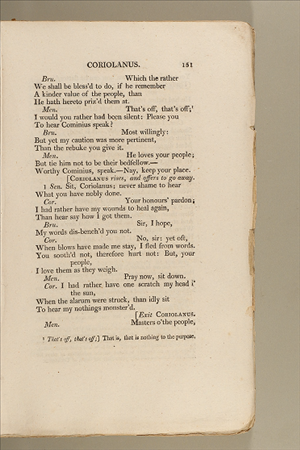 CORIOLANUS. 151
Bru. Which the rather
We shall be bless'd to do, if he remember
A kinder value of the people, than
He hath hereto priz'd them at.
Men. That's off, that's off;¹
I would you rather had been silent: Please you
To hear Cominius speak?
Bru. Most willingly:
But yet my caution was more pertinent,
Than the rebuke you give it.
Men. He loves your people;
But tie him not to be their bedfellow.—
Worthy Cominius, speak.—Nay, keep your place.
[CORIOLANUS rises, and offers to go away.
1 Sen. Sit, Coriolanus; never shame to hear
What you have nobly done.
Cor. Your honours' pardon;
I had rather have my wounds to heal again,
Than hear say how I got them.
Bru. Sir, I hope,
My words dis-bench'd you not.
Cor. No, sir: yet oft,
When blows have made me stay, I fled from words.
You sooth'd not, therefore hurt not: But, your
people,
I love them as they weigh.
Men. Pray now, sit down.
Cor. I had rather have one scratch my head i'
the sun,
When the alarum were struck, than idly sit
To hear my nothings monster'd.
[Exit CORIOLANUS.
Men. Masters o'the people,
¹ That's off, that's off;] That is, that is nothing to the purpose.